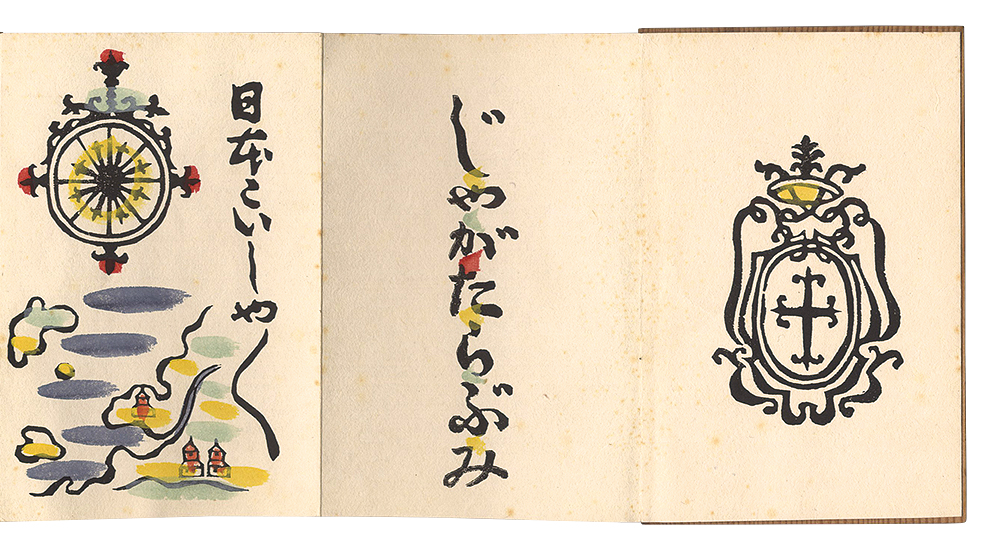 じやがたらぶみ
日本こいしや〱